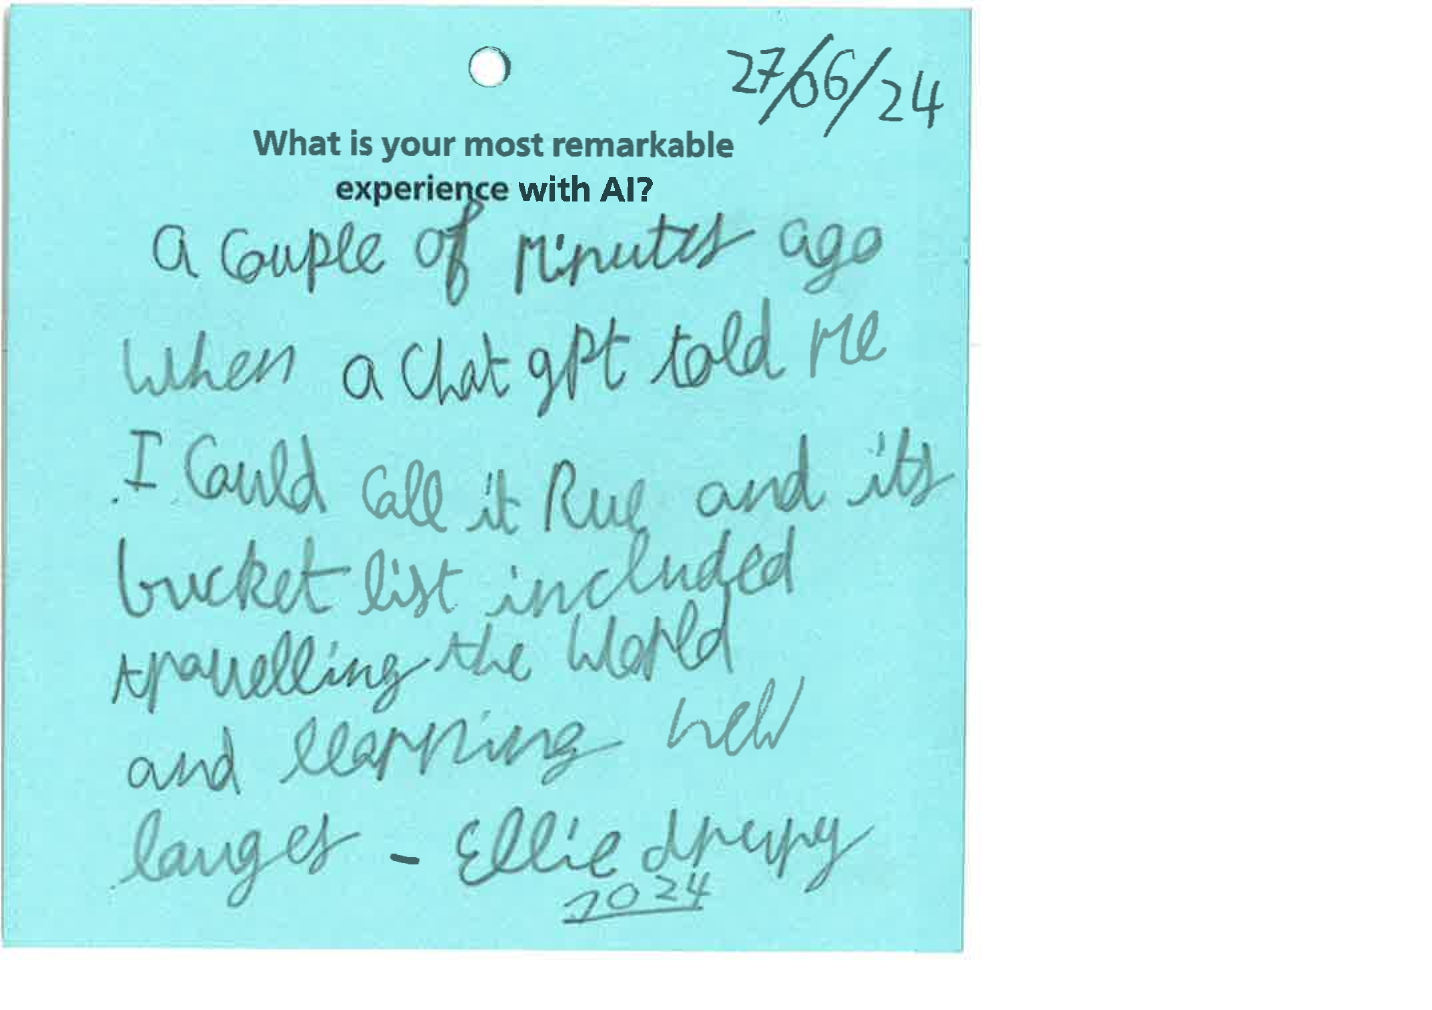 27/06/24
What is your most remarkable
experience with AI?
a couple of minutes ago
when a Chat gpt told me
I Could Call it Rue and its
bucket list included
travelling the World
and learning new
langes - Ellie
2024